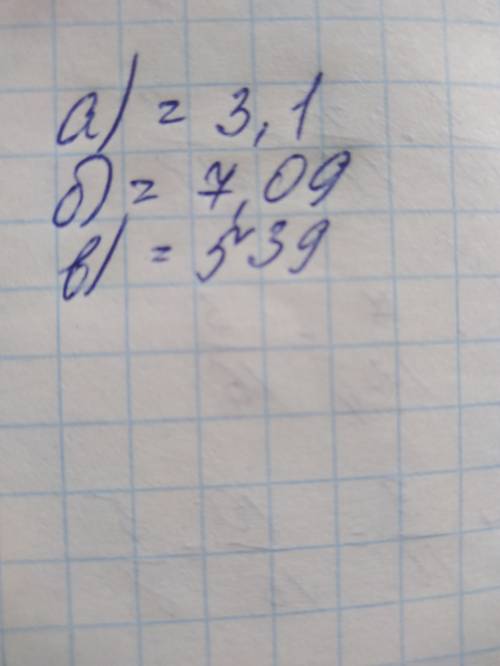 а) = 3,1
б) = 7,09
в) = 539